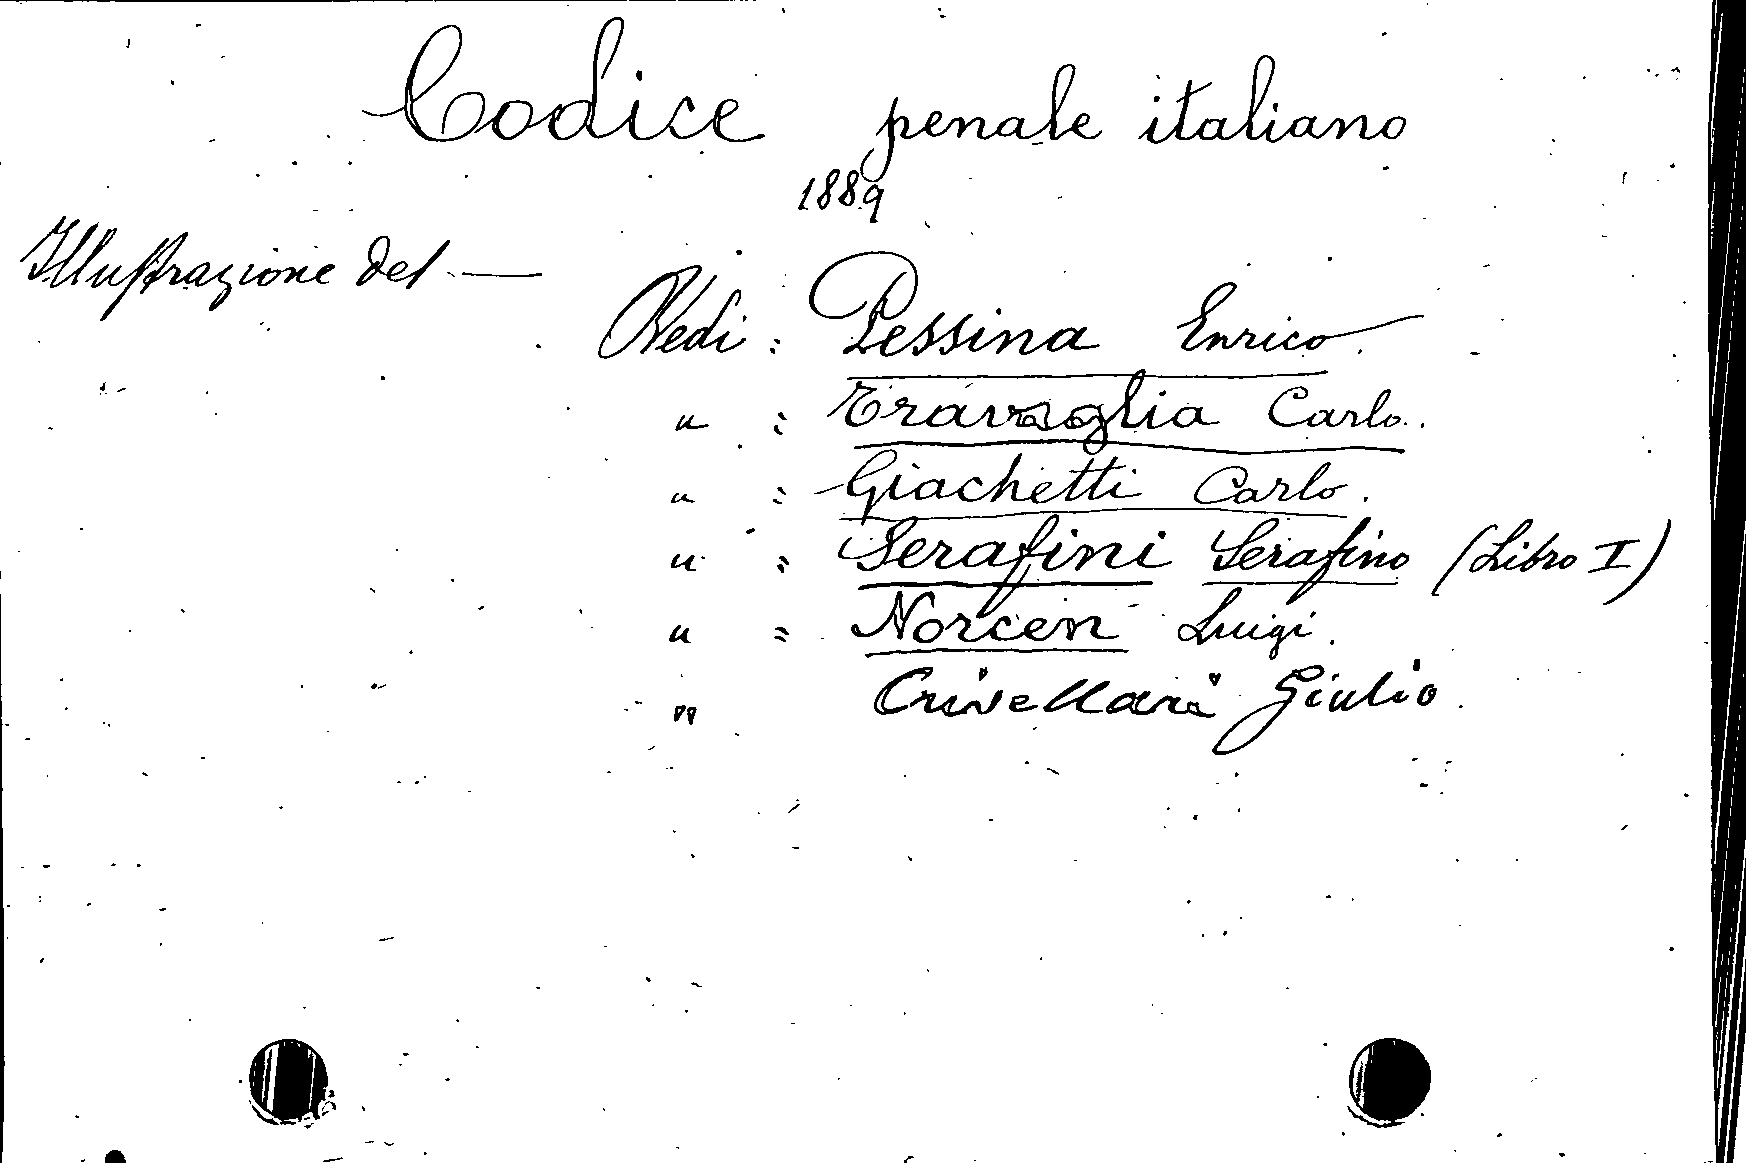 Codice penale italiano
1889
Illustrazione del —
Vedi : Pessina Enrico.
" : Travaglia Carlo.
" : Giachetti Carlo.
" : Serafini Serafino (Libro I)
" : Norcen Luigi.
" Crivellari Giulio.